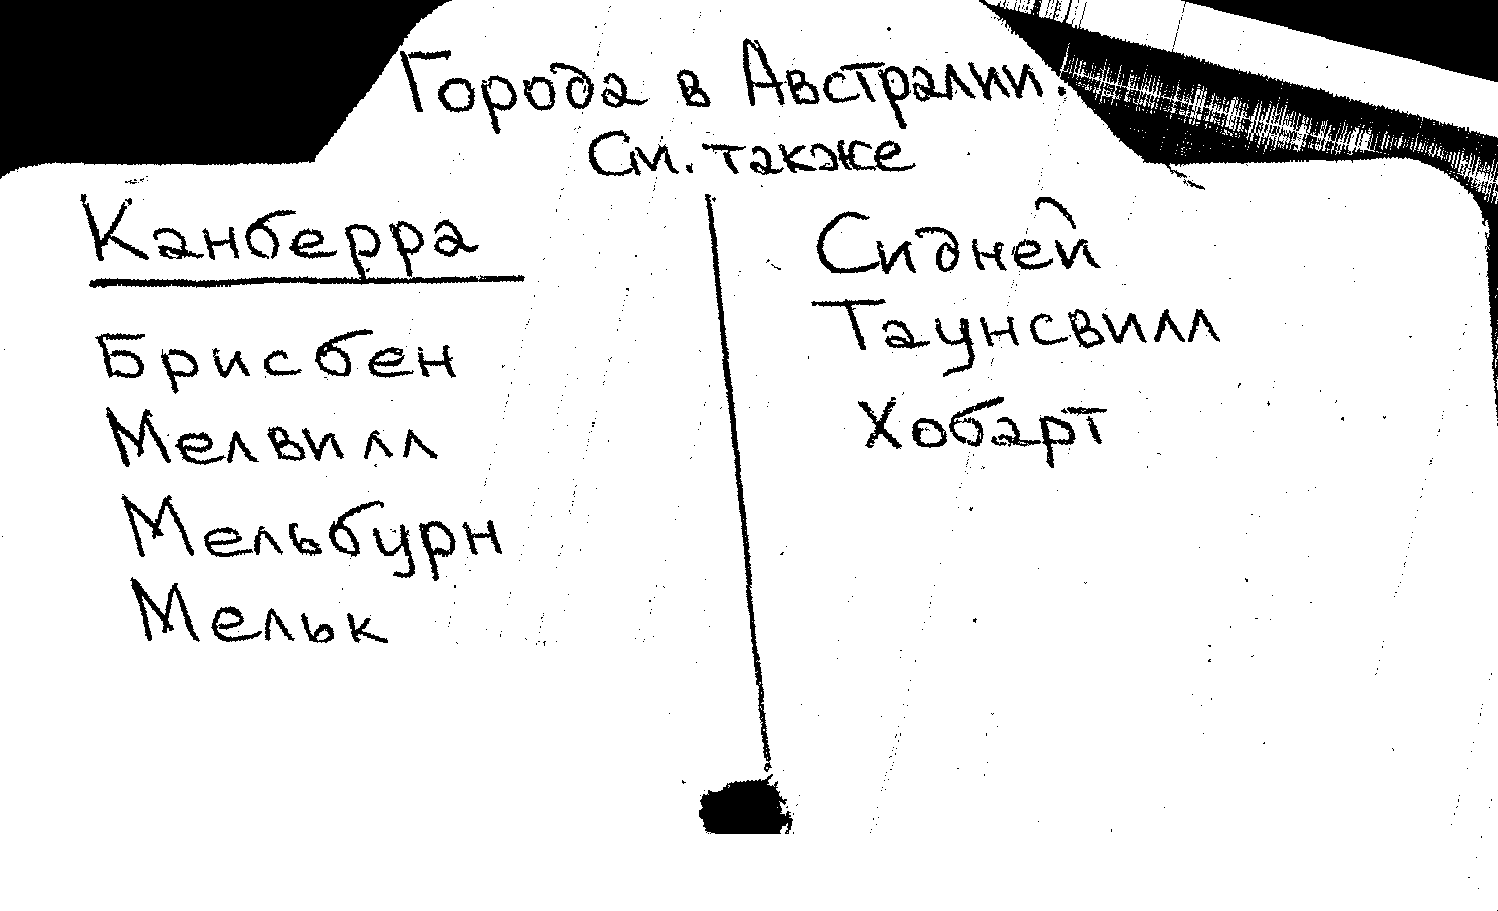 Города в Австралии.
См. также
Канберра
Брисбен
Мелвилл
Мельбурн
Мельк
Сидней
Таунсвилл
Хобарт